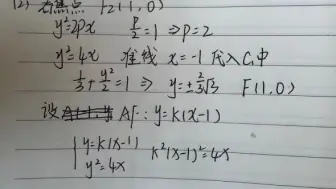 (2) 右焦点 F₂(1,0)
y²=2px  p/2=1 ⇒p=2
y²=4x 准线 x=-1 代入C₁中
1/3+y²/2=1 ⇒ y=±2/3√3 F(1,0)
设 AF: y=k(x-1)
{y=k(x-1) k²(x-1)²=4x
y²=4x